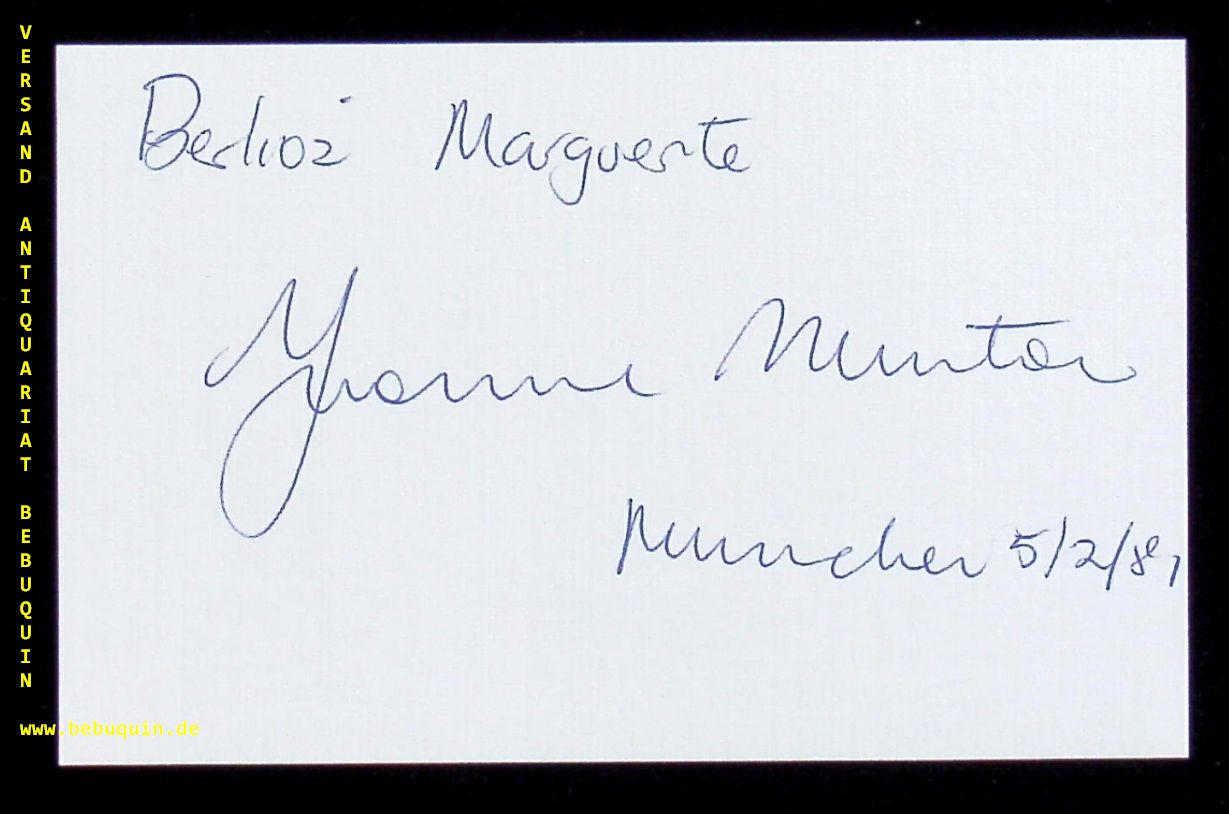 VERSAND ANTIQUARIAT BEBUQUIN
Berlioz Marguerite
Yvonne Minton
München 5/2/81
www.bebuquin.de